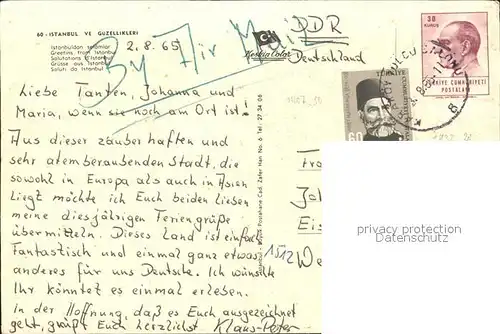 60 - ISTANBUL VE GÜZELLİKLERİ
İstanbuldan selâmlar
Greetins from Istanbul
Salutations d'Istanbul
Grüsse aus Istanbul
Saluti da Istanbul
2.8.65
By Air Mail
Keskin Color
DDR
Deutschland
30
KURUŞ
TÜRKİYE CUMHURİYETİ
POSTALARI
60
Liebe Tanten, Johanna und
Maria, wenn sie noch am Ort ist!
Aus dieser zauberhaften und
sehr atemberaubenden Stadt, die
sowohl in Europa als auch in Asien
liegt möchte ich Euch beiden lieben
meine diesjährigen Feriengrüße
übermitteln. Dieses Land ist einfach
Fantastisch und einmal ganz etwas
anderes für uns Deutsche. Ich wünschte
Ihr könntet es einmal erleben.
In der Hoffnung, daß es Euch ausgezeichnet
geht, grüßt Euch herzlichst Klaus-Peter
1512
privacy protection
Datenschutz